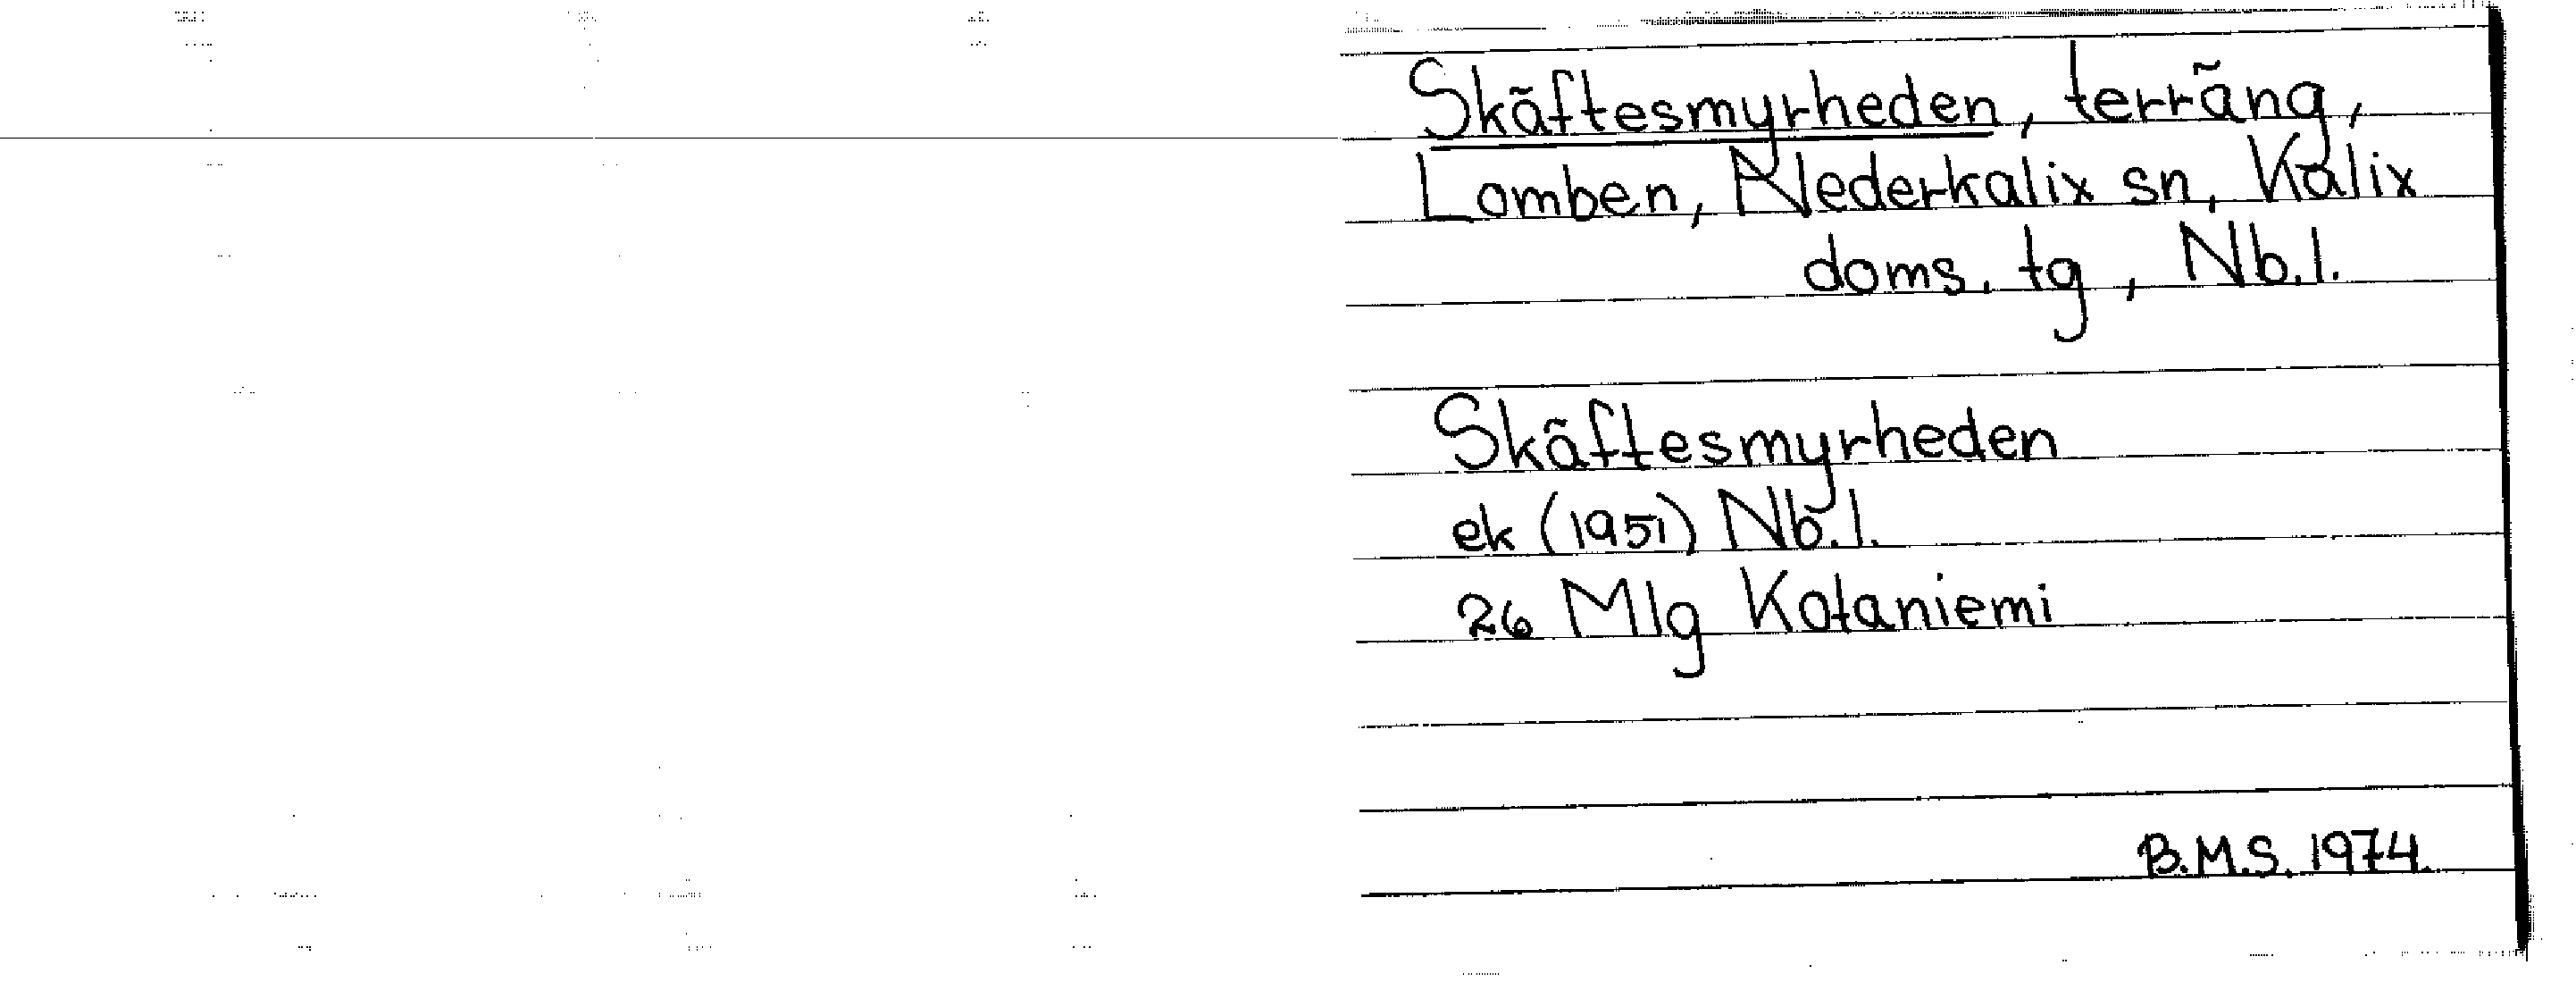 Skäftesmyrheden, terräng,
Lomben, Nederkalix sn, Kalix
doms. tg, Nb.l.
Skäftesmyrheden
ek (1951) Nb.l.
26 Mlg Kotaniemi
B.M.S. 1974.